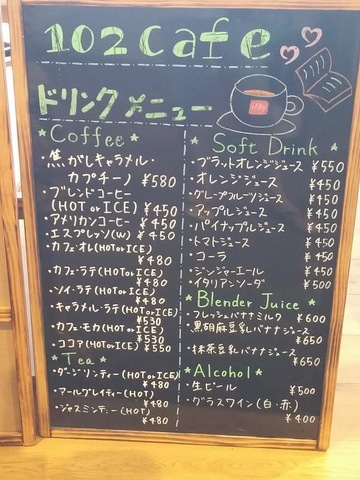 102 cafe
ドリンクメニュー
illy
*Coffee*
・焦がしキャラメル・
カプチーノ ¥580
・ブレンドコーヒー
(HOT or ICE) ¥450
・アメリカンコーヒー ¥450
・エスプレッソ(W) ¥450
・カフェ・オレ(HOT or ICE)
¥480
・カフェ・ラテ(HOT or ICE)
¥480
・ソイ・ラテ(HOT or ICE)
¥480
・キャラメル・ラテ(HOT or ICE)
¥530
・カフェ・モカ(HOT or ICE)
¥530
・ココア(HOT or ICE) ¥550
*Tea*
・ダージリンティー(HOT or ICE)
¥480
・アールグレイティー(HOT)
¥480
・ジャスミンティー(HOT)
¥480
*Soft Drink*
・ブラッドオレンジジュース ¥550
・オレンジジュース ¥450
・グレープフルーツジュース ¥450
・アップルジュース ¥450
・パイナップルジュース ¥450
・トマトジュース ¥450
・コーラ ¥450
・ジンジャーエール ¥450
・イタリアンソーダ ¥500
*Blender Juice*
・フレッシュバナナミルク ¥600
・黒胡麻豆乳バナナジュース
¥650
・抹茶豆乳バナナジュース
¥650
*Alcohol*
・生ビール ¥500
・グラスワイン(白・赤)
¥400